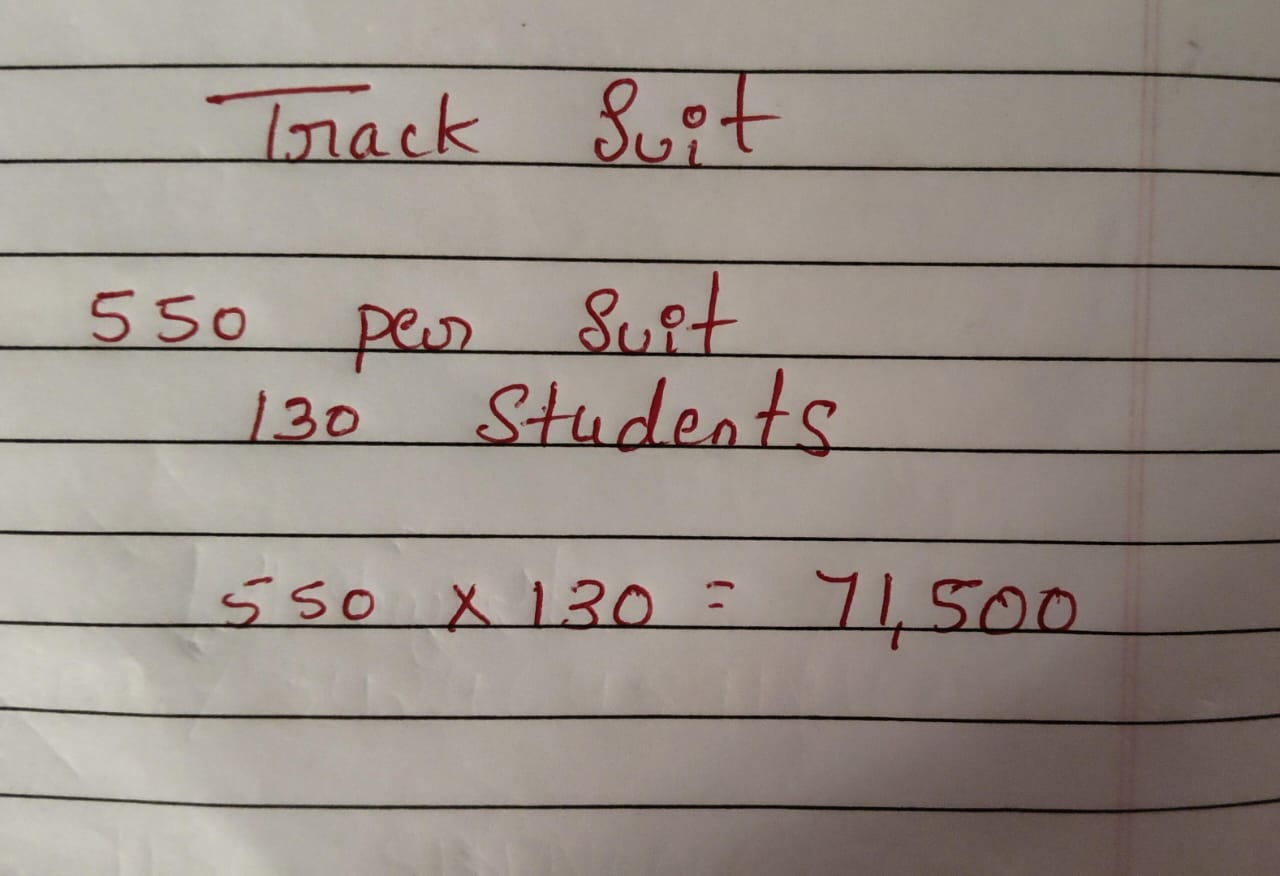 Track Suit
550 per Suit
130 Students
550 x 130 = 71,500